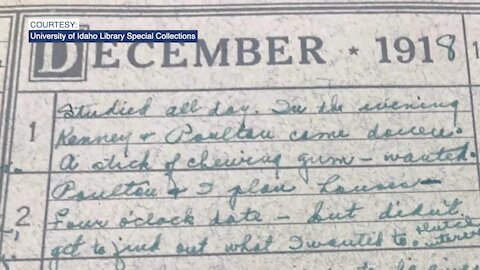 COURTESY:
University of Idaho Library Special Collections
DECEMBER ★ 1918
1
Studied all day. In the evening
Kenney & Poulton come down.
A stick of chewing gum — wanted.
Poulton & I plan houses —
2
four o'clock date — but didn't
get to find out what I wanted to